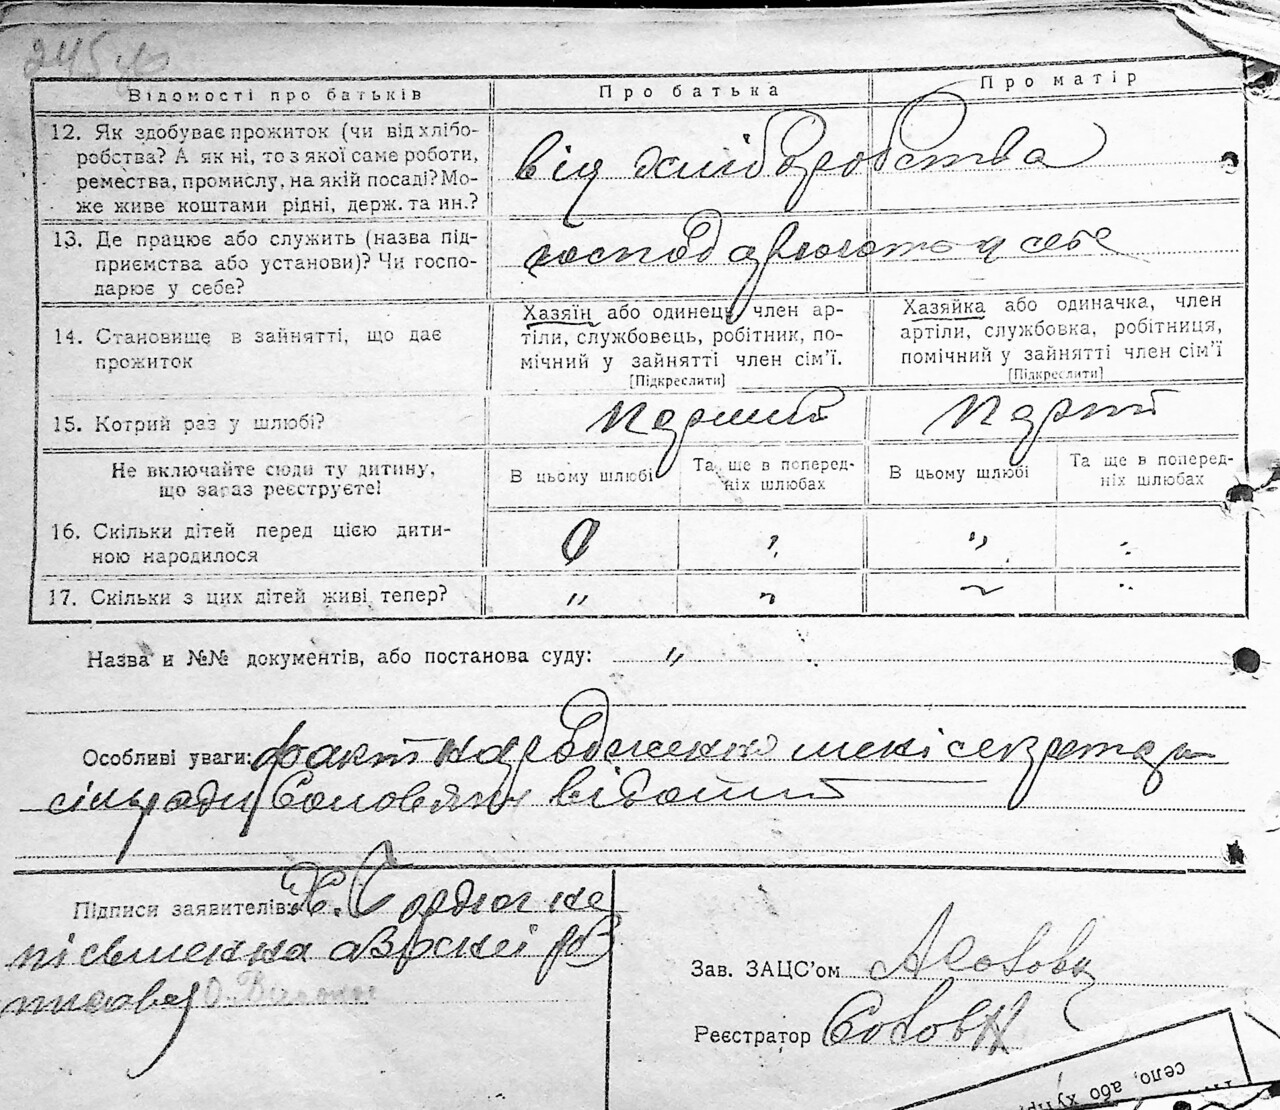 245
Відомості про батьків
Про батька
Про матір
12. Як здобуває прожиток (чи від хлібо-
робства? А як ні, то з якої саме роботи,
ремества, промислу, на якій посаді? Мо-
же живе коштами рідні, держ. та ин.?
від хліборобства
13. Де працює або служить (назва під-
приємства або установи)? Чи госпо-
дарює у себе?
господарюють у себе
14. Становище в зайнятті, що дає
прожиток
Хазяїн або одинець, член ар-
тіли, службовець, робітник, по-
мічний у зайнятті член сім'ї.
[Підкреслити]
Хазяйка або одиначка, член
артіли, службовка, робітниця,
помічний у зайнятті член сім'ї
[Підкреслити]
15. Котрий раз у шлюбі?
Перший
Перший
Не включайте сюди ту дитину,
що зараз реєструєте!
В цьому шлюбі
Та ще в поперед-
ніх шлюбах
В цьому шлюбі
Та ще в поперед-
ніх шлюбах
16. Скільки дітей перед цією дити-
ною народилося
0 " " "
17. Скільки з цих дітей живі тепер?
" " " "
Назва и №№ документів, або постанова суду: "
Особливі уваги: факт народження мені секретар
сільради відомий
Підписи заявителів: Х. не
письменна а в
Зав. ЗАЦС'ом
Реєстратор
село, або хут